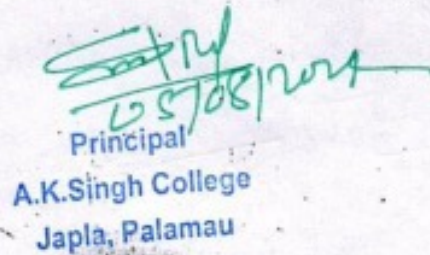 05/08/2024
Principal
A.K.Singh College
Japla, Palamau